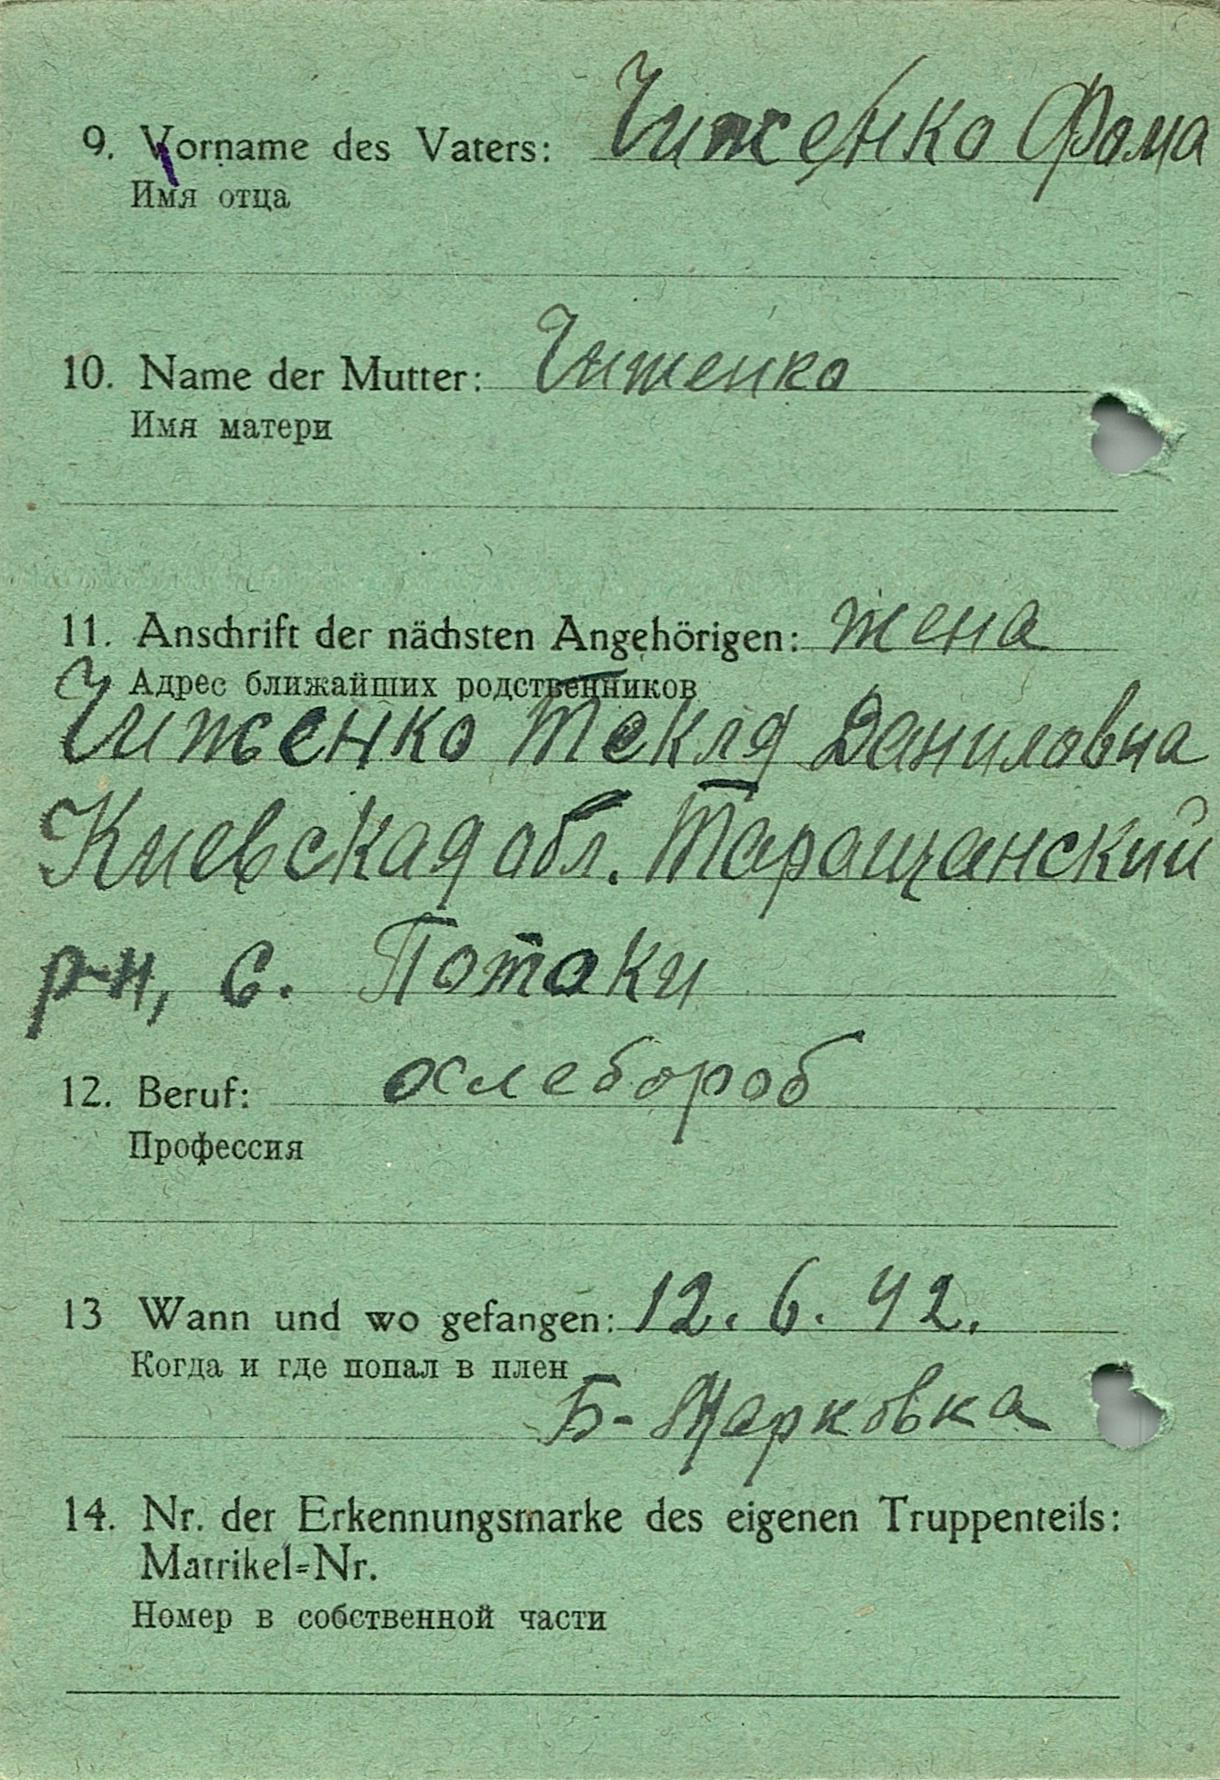 9. Vorname des Vaters: Чиженко Фома
Имя отца
10. Name der Mutter: Чиженко
Имя матери
11. Anschrift der nächsten Angehörigen: жена
Адрес ближайших родственников
Чиженко Текля Даниловна
Киевская обл. Таращанский
р-н, с. Потоки
12. Beruf: хлебороб
Профессия
13 Wann und wo gefangen: 12. 6. 42.
Когда и где попал в плен
Б-
14. Nr. der Erkennungsmarke des eigenen Truppenteils:
Matrikel-Nr.
Номер в собственной части